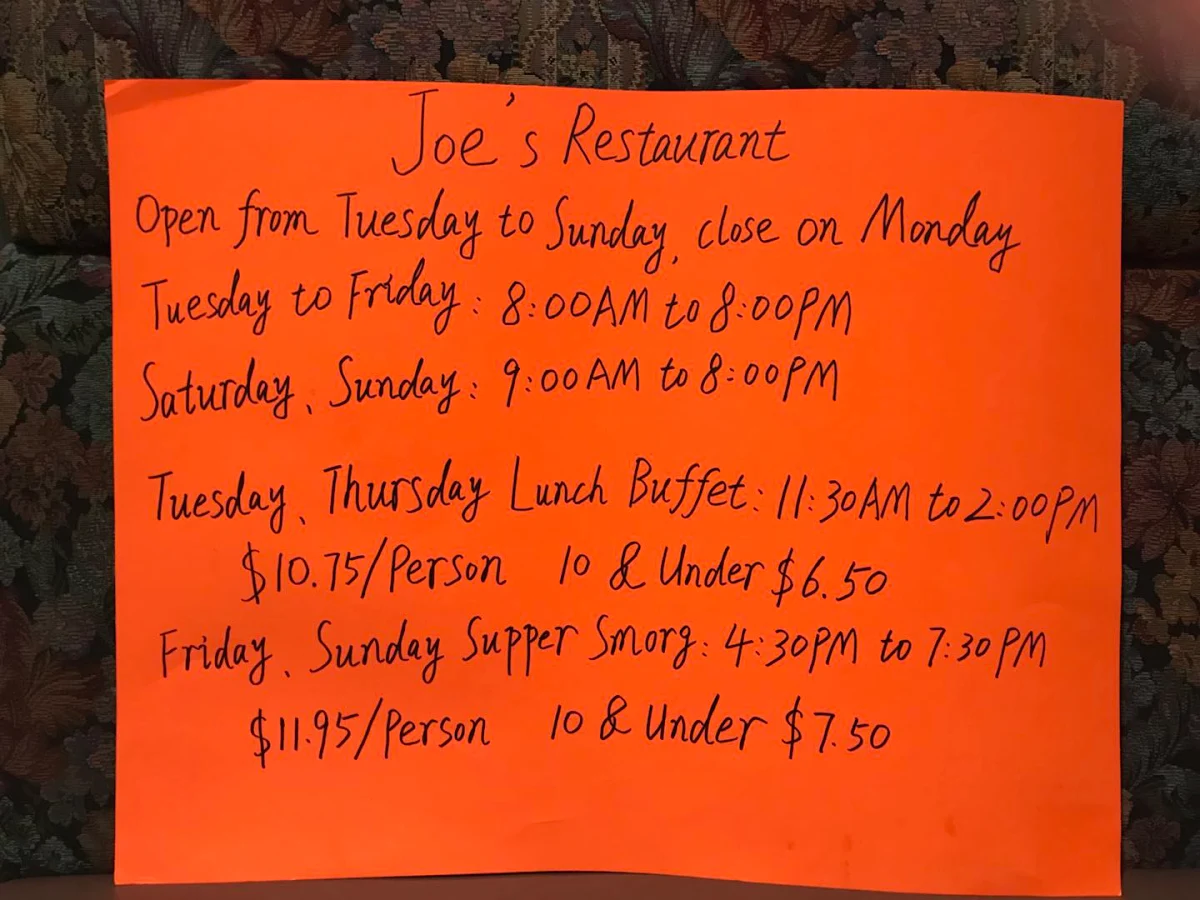 Joe's Restaurant
Open from Tuesday to Sunday, close on Monday
Tuesday to Friday: 8:00AM to 8:00PM
Saturday、Sunday: 9:00AM to 8:00PM
Tuesday、Thursday Lunch Buffet: 11:30AM to 2:00PM
$10.75/Person 10 & Under $6.50
Friday、Sunday Supper Smorg: 4:30PM to 7:30PM
$11.95/Person 10 & Under $7.50